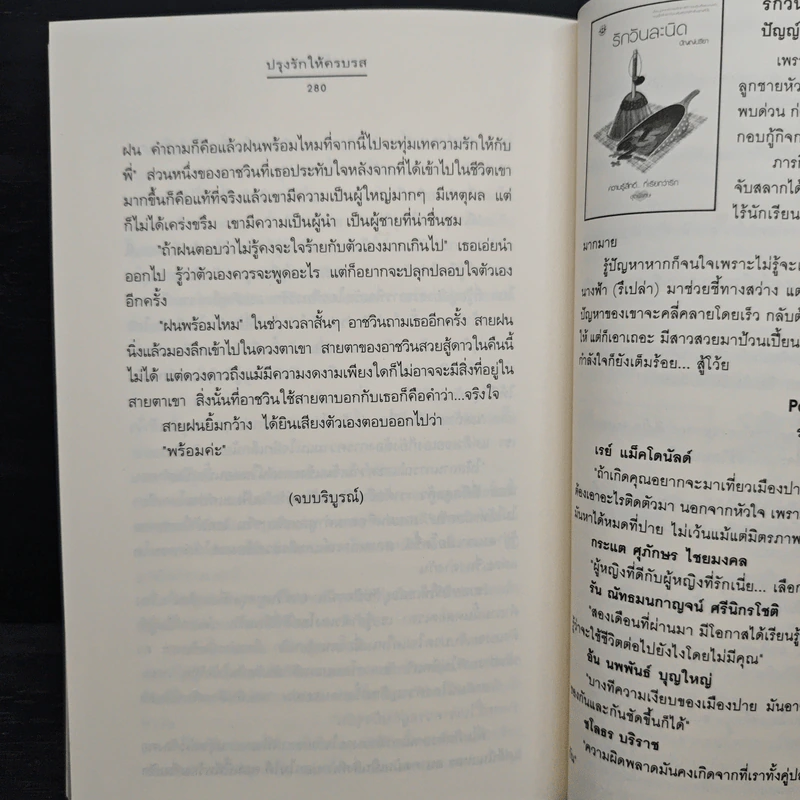 ปรุงรักให้ครบรส
280
ฝน คำถามก็คือแล้วฝนพร้อมไหมที่จากนี้ไปจะทุ่มเทความรักให้กับ
พี่" ส่วนหนึ่งของอาชวินที่เธอประทับใจหลังจากที่ได้เข้าไปในชีวิตเขา
มากขึ้นก็คือแท้ที่จริงแล้วเขามีความเป็นผู้ใหญ่มากๆ มีเหตุผล แต่
ก็ไม่ได้เคร่งขรึม เขามีความเป็นผู้นำ เป็นผู้ชายที่น่าชื่นชม
"ถ้าฝนตอบว่าไม่รู้คงจะใจร้ายกับตัวเองมากเกินไป" เธอเอ่ยนำ
ออกไป รู้ว่าตัวเองควรจะพูดอะไร แต่ก็อยากจะปลุกปลอบใจตัวเอง
อีกครั้ง
"ฝนพร้อมไหม" ในช่วงเวลาสั้นๆ อาชวินถามเธออีกครั้ง สายฝน
นิ่งแล้วมองลึกเข้าไปในดวงตาเขา สายตาของอาชวินสวยสู้ดาวในคืนนี้
ไม่ได้ แต่ดวงดาวถึงแม้มีความงดงามเพียงใดก็ไม่อาจจะมีสิ่งที่อยู่ใน
สายตาเขา สิ่งนั้นที่อาชวินใช้สายตาบอกกับเธอก็คือคำว่า...จริงใจ
สายฝนยิ้มกว้าง ได้ยินเสียงตัวเองตอบออกไปว่า
"พร้อมค่ะ"
(จบบริบูรณ์)
รักวันละนิด
รักวัน
ปัญญ์
เพรา
ลูกชายหัว
พบด่วน ก่
กอบกู้กิจก
ภารกิ
จับสลากได้
ไร้นักเรียน
มากมาย
รู้ปัญหาหากก็จนใจเพราะไม่รู้จะเ
นางฟ้า (รึเปล่า) มาช่วยชี้ทางสว่าง แต่
ปัญหาของเขาจะคลี่คลายโดยเร็ว กลับต้
ให้ แต่ก็เอาเถอะ มีสาวสวยมาป่วนเปี้ยน
กำลังใจก็ยังเต็มร้อย... สู้โว้ย
เรย์ แม็คโดนัลด์
"ถ้าเกิดคุณอยากจะมาเที่ยวเมืองปา
ต้องเอาอะไรติดตัวมา นอกจากหัวใจ เพรา
มันหาได้หมดที่ปาย ไม่เว้นแม้แต่มิตรภาพ
กระแต ศุภักษร ไชยมงคล
"ผู้หญิงที่ดีกับผู้หญิงที่รักเนี่ย... เลือก
รัน ณัทธมนกาญจน์ ศรีนิกรโชติ
"สองเดือนที่ผ่านมา มีโอกาสได้เรียนรู้
รู้ว่าจะใช้ชีวิตต่อไปยังไงโดยไม่มีคุณ"
อ้น นพพันธ์ บุญใหญ่
"บางทีความเงียบของเมืองปาย มันอา
องกันและกันชัดขึ้นก็ได้"
ชโลธร บริราช
"ความผิดพลาดมันคงเกิดจากที่เราทั้งคู่ปล